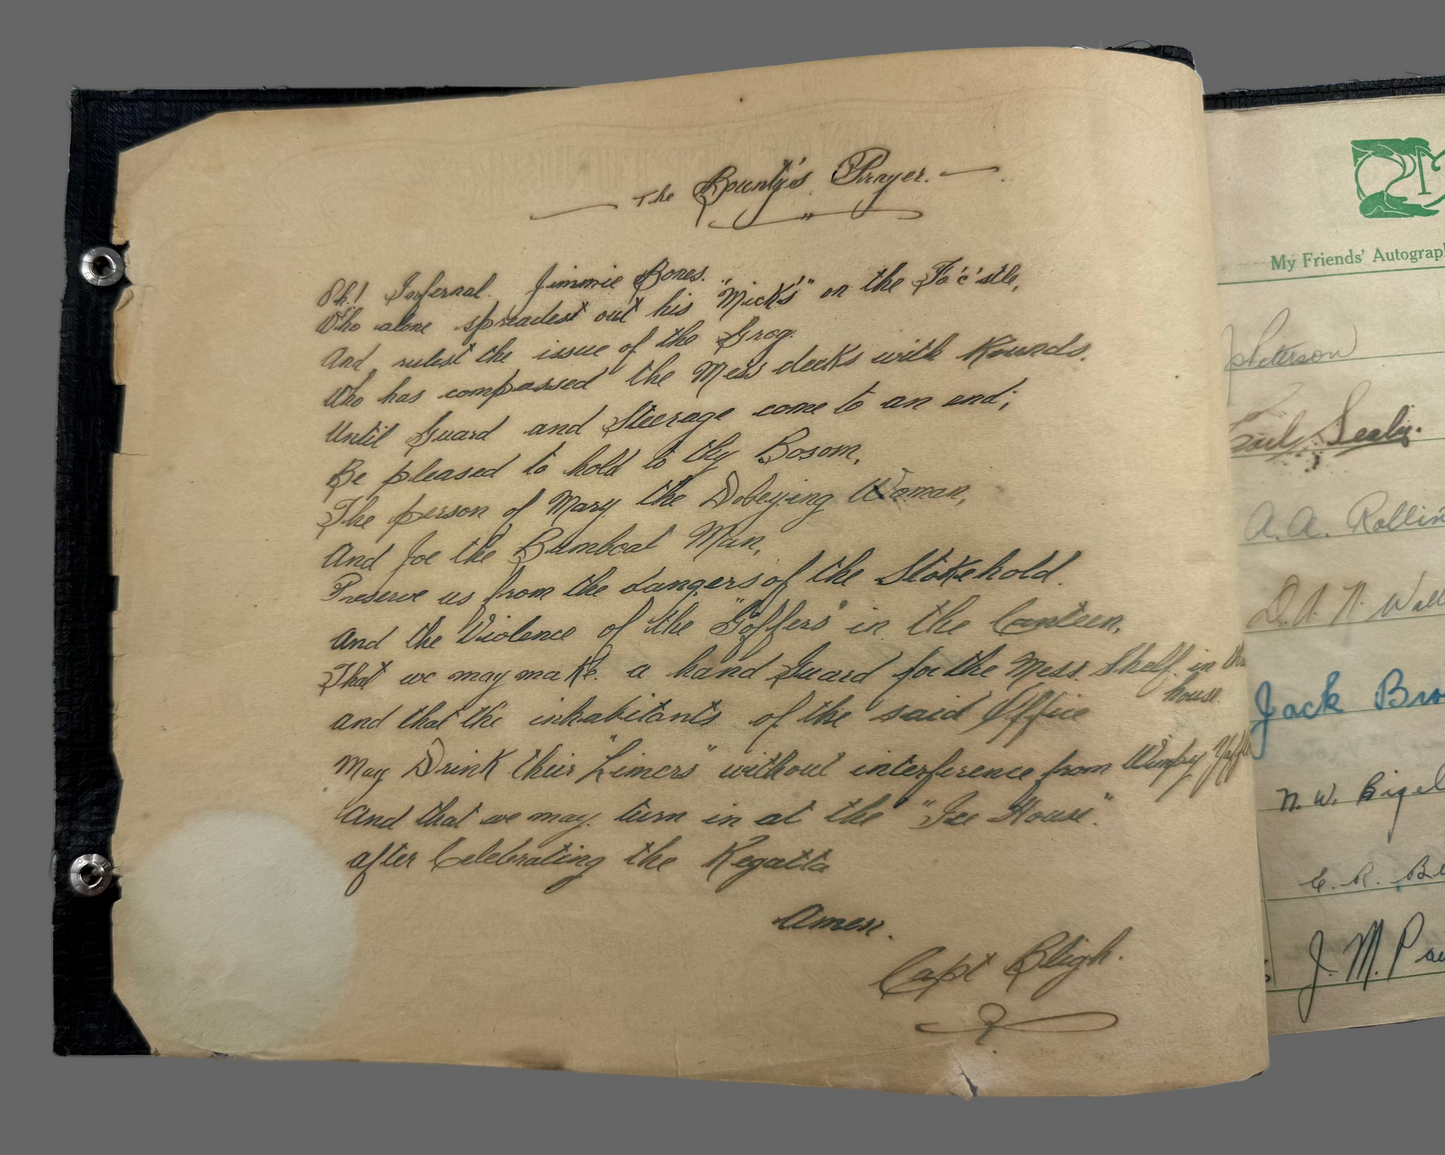 The Bounty's Prayer.
Oh! Infernal Jimmie Bones.
Who alone spreadest out his "Micks" on the Fo'c'stle,
And rulest the issue of the Grog.
Who has compassed the Mess decks with Rounds.
Until Guard and Steerage come to an end;
Be pleased to hold to thy Bosom,
The person of Mary the Dobeying Woman,
And Joe the Bumboat Man,
Preserve us from the dangers of the Stokehold.
And the Violence of the "Goffers" in the Canteen,
That we may make a hand Guard for the Mess Shelf in the
house.
and that the inhabitants of the said Office
May Drink their "Limers" without interference from Wimpy
And that we may turn in at the "Ice House".
after Celebrating the Regatta
Amen.
Capt Bligh.
My Friends' Autograp
Peterson
Sealy.
A. A. Rollin
D. A. N. Wal
Jack Bro
N. W. Bigel
E. R. Be
J. M. Pa